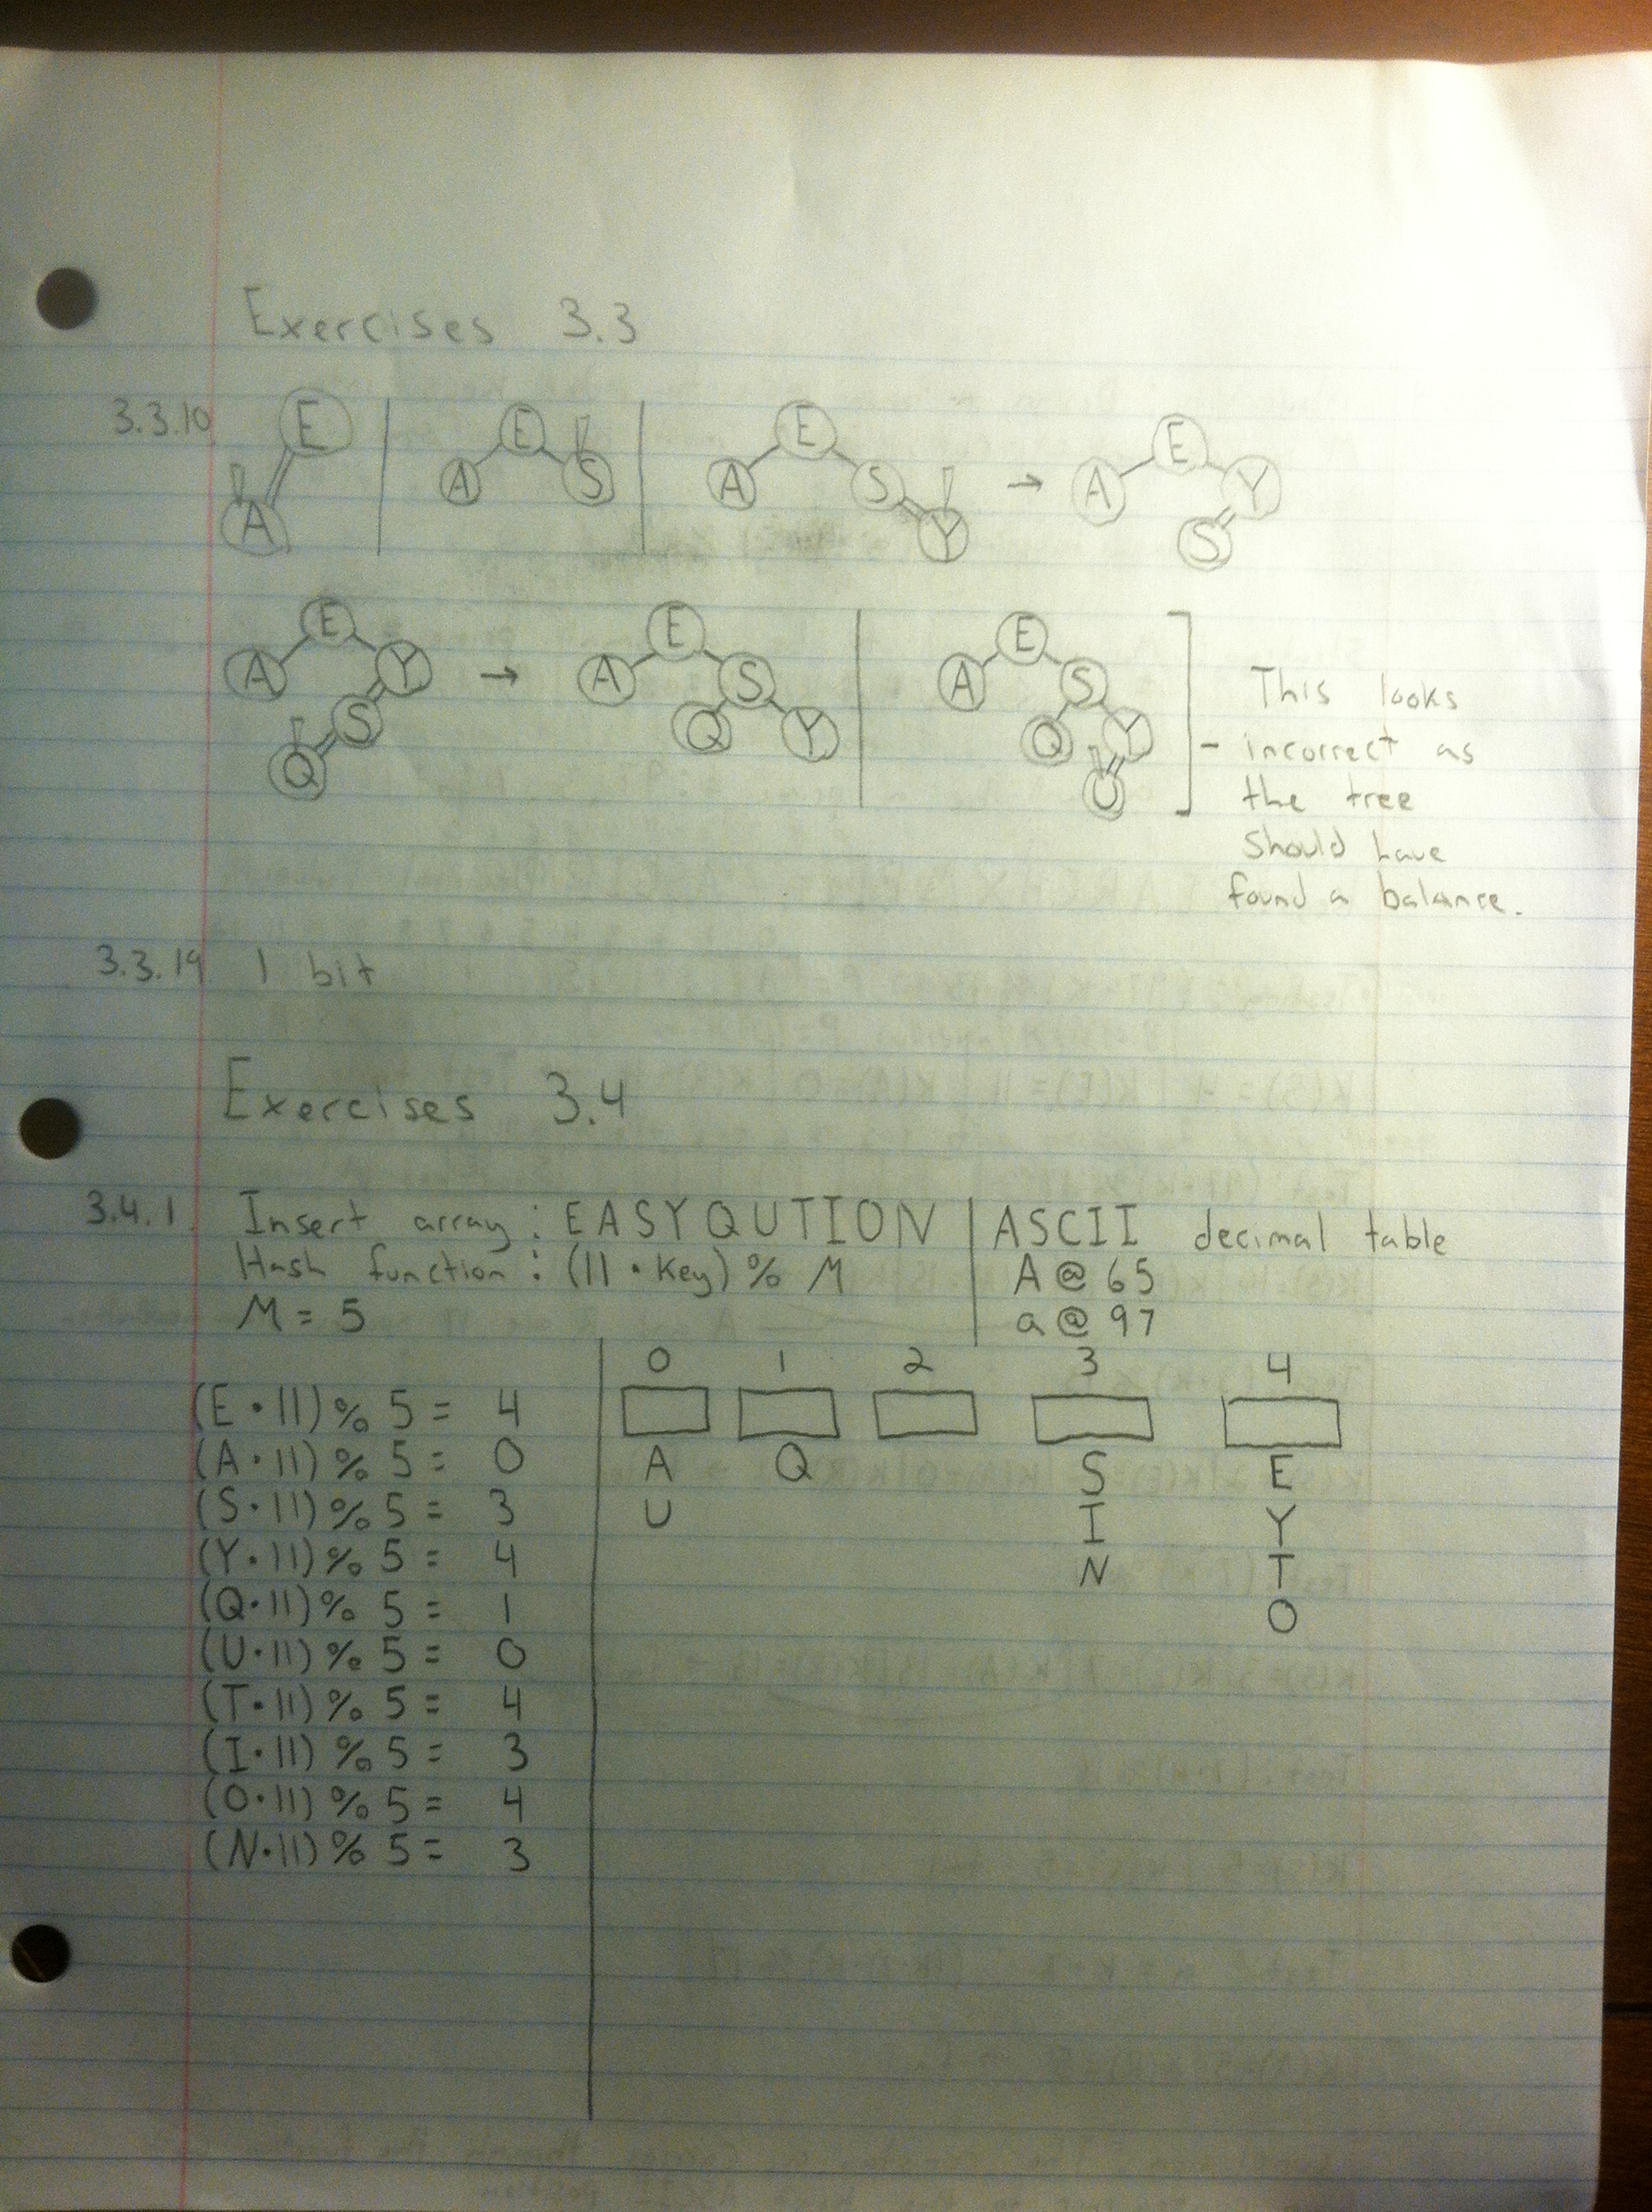 Exercises 3.3
3.3.10
E
A
E
A
S
E
A
S
Y
→
E
A
Y
S
E
A
Y
S
Q
→
E
A
S
Q
Y
E
A
S
Q
Y
U
This looks
- incorrect as
the tree
should have
found a balance.
3.3.19 1 bit
Exercises 3.4
3.4.1 Insert array: EASYQUTION | ASCII decimal table
Hash function: (11 · Key) % M A @ 65
M = 5 a @ 97
0 1 2 3 4
(E · 11) % 5 = 4
(A · 11) % 5 = 0 A Q S E
(S · 11) % 5 = 3 U I Y
(Y · 11) % 5 = 4 N T
(Q · 11) % 5 = 1 O
(U · 11) % 5 = 0
(T · 11) % 5 = 4
(I · 11) % 5 = 3
(O · 11) % 5 = 4
(N · 11) % 5 = 3